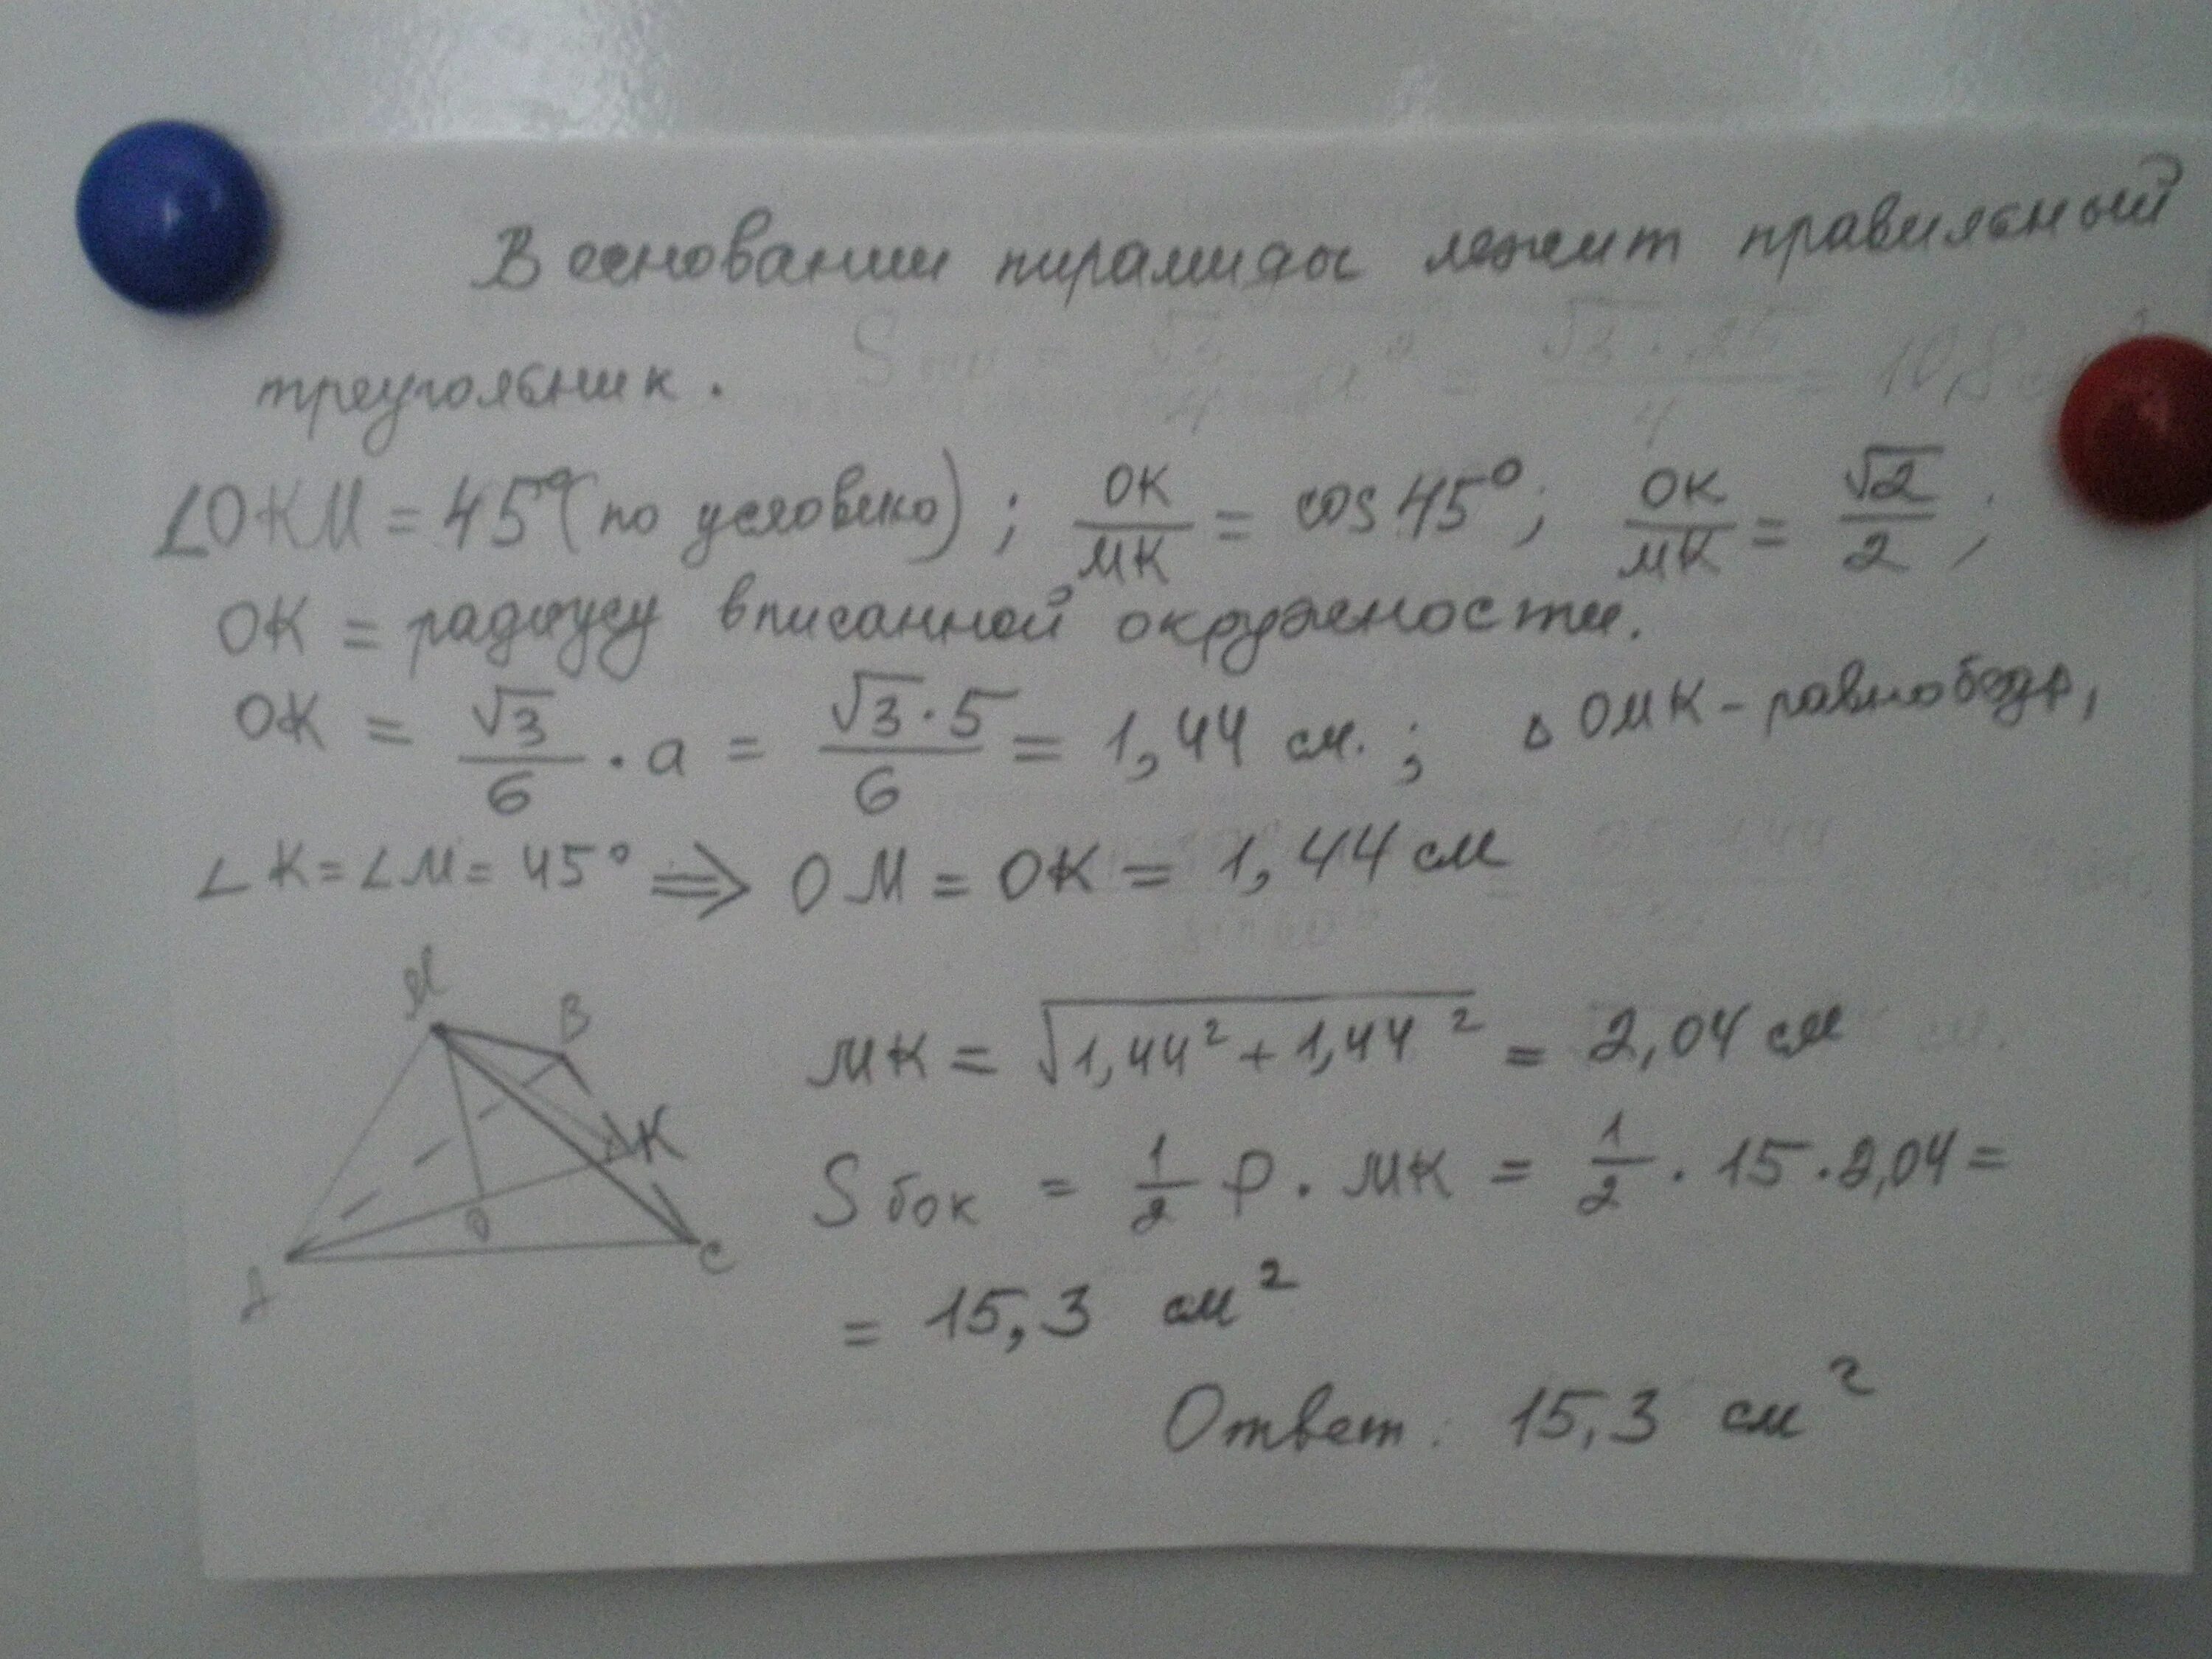 В основании пирамиды лежит правильный
треугольник.
∠OKM = 45° (по условию) ; OK/MK = cos 45°; OK/MK = √2/2 ;
OK = радиусу вписанной окружности.
OK = √3/6 · a = √3·5/6 = 1,44 см. ; △ OMK - равнобедр,
∠K = ∠M = 45° ⇒ OM = OK = 1,44 см
M
B
K
O
A
C
MK = √1,44² + 1,44² = 2,04 см
Sбок = 1/2 P · MK = 1/2 · 15 · 2,04 =
= 15,3 см²
Ответ: 15,3 см²